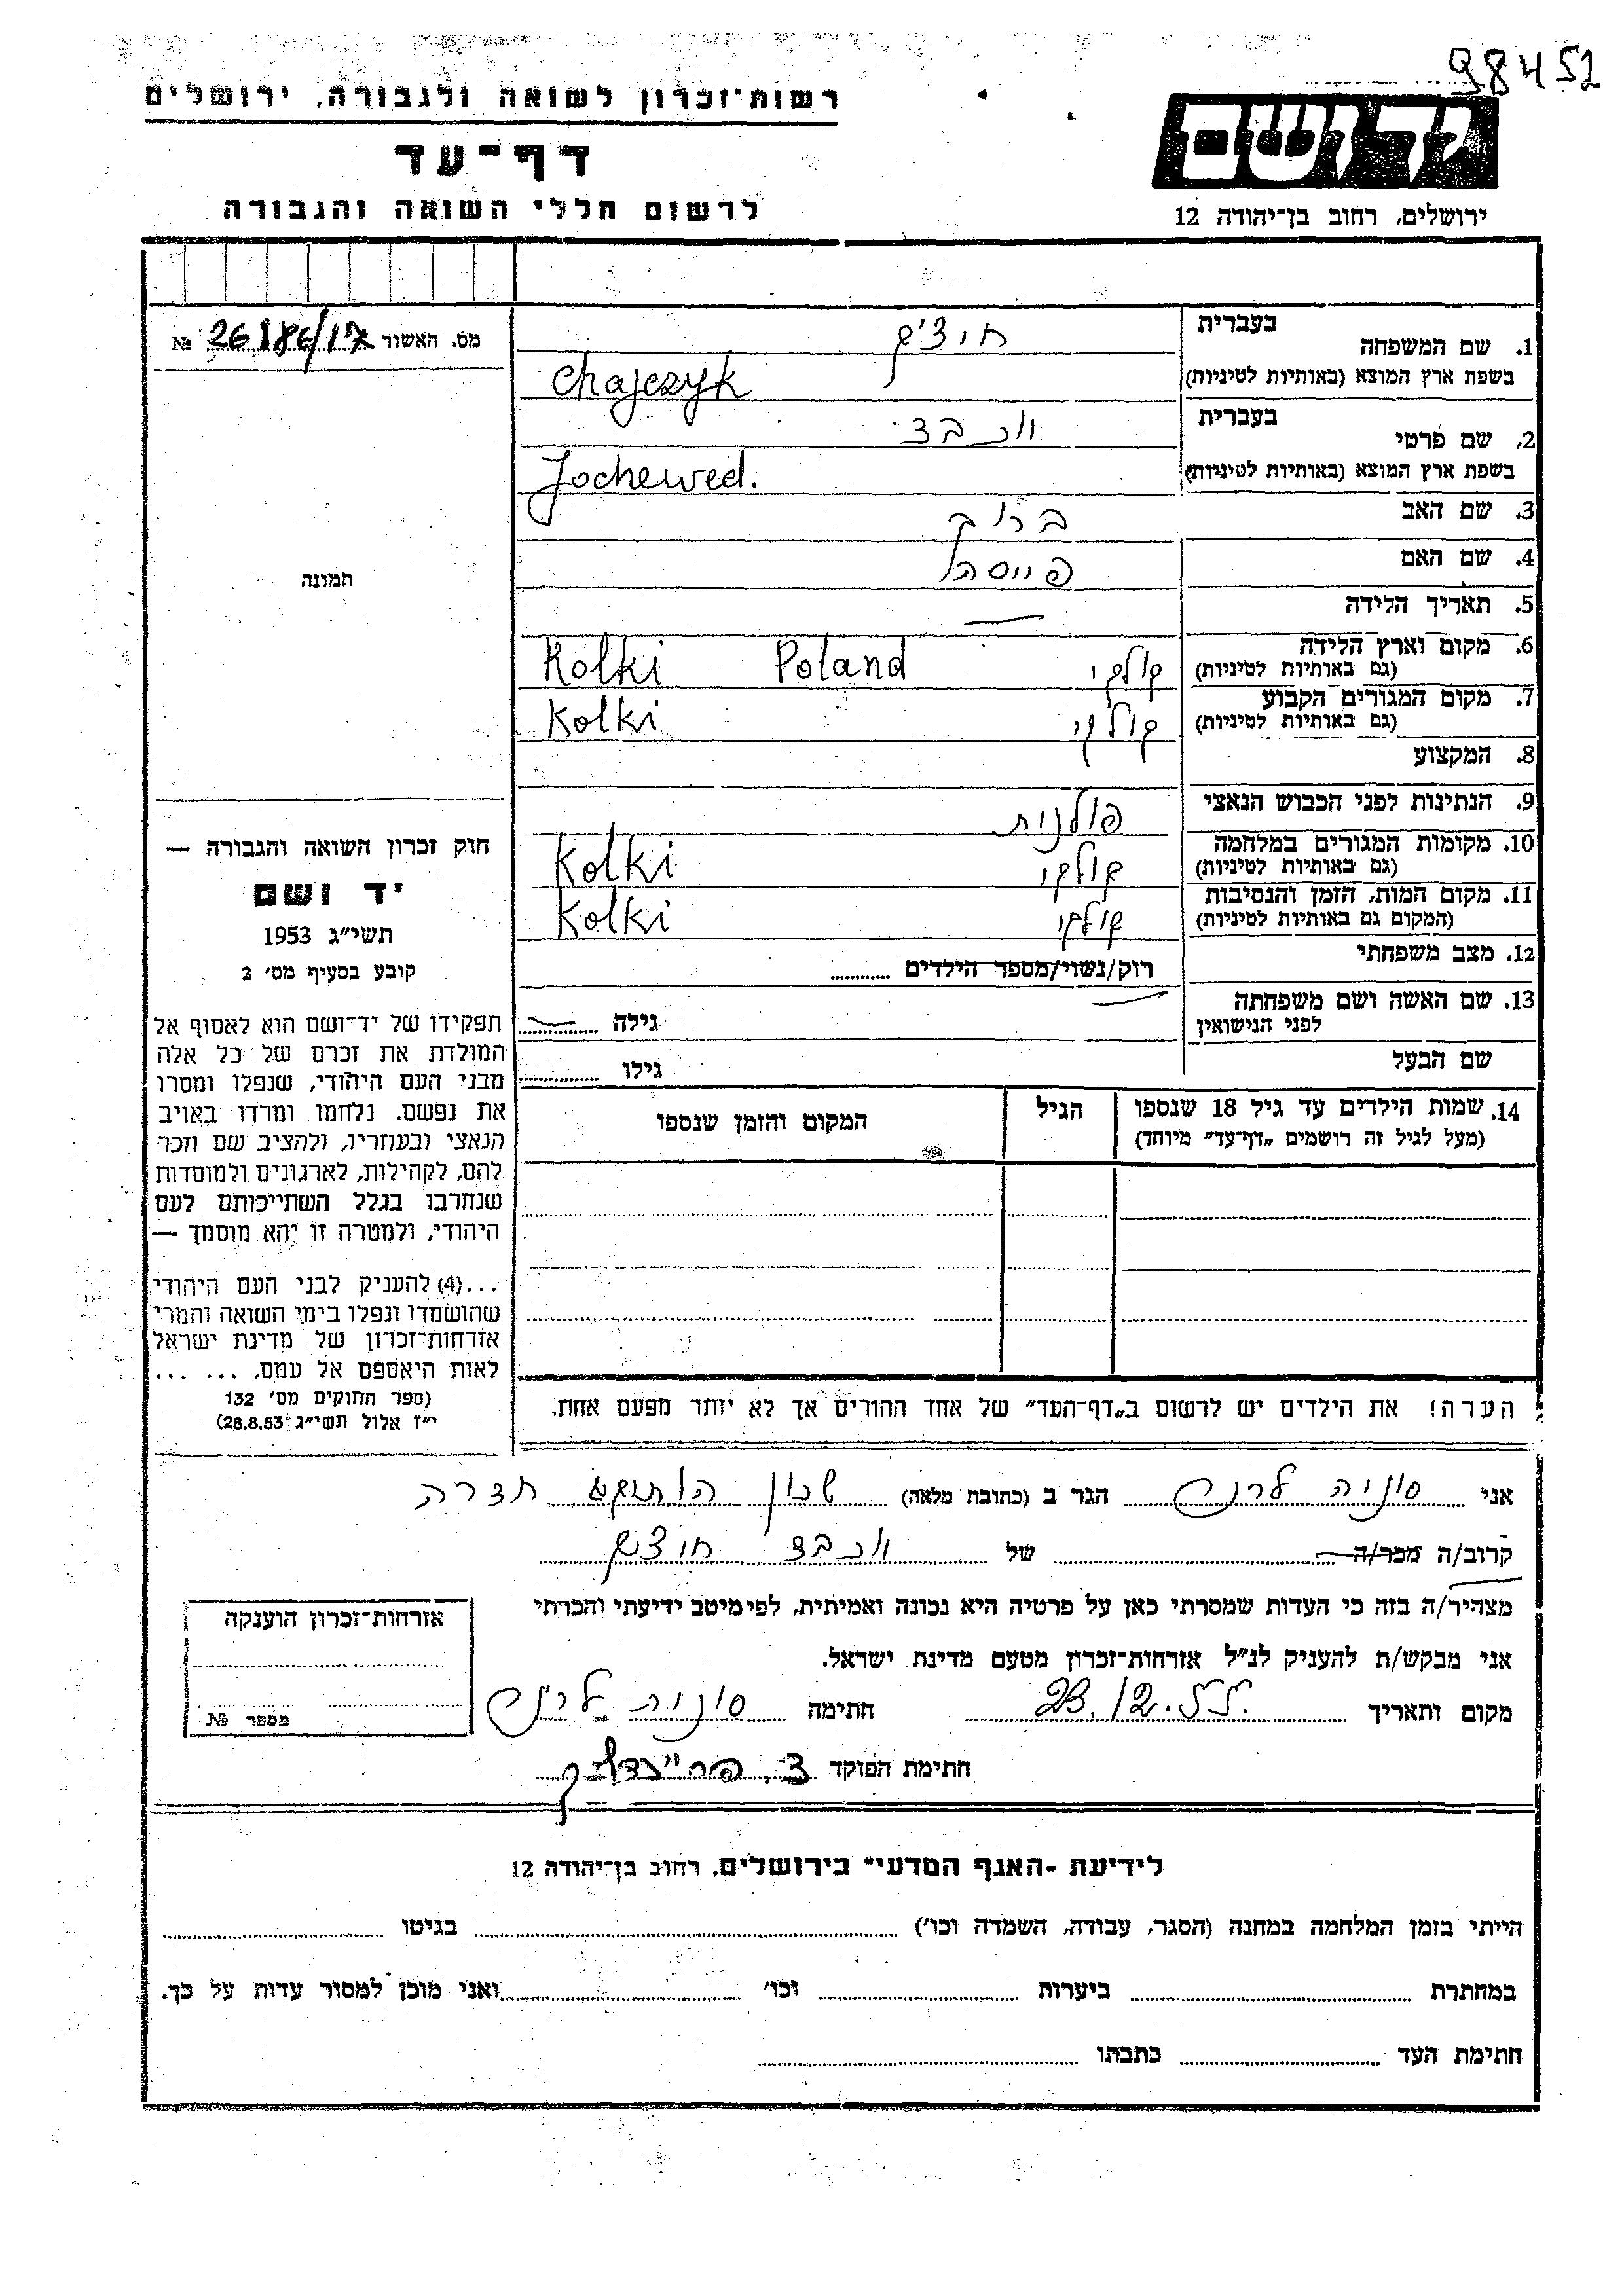 98452
רשות־זכרון לשואה ולגבורה, ירושלים
דף־עד
לרשום חללי השואה והגבורה
יד ושם
ירושלים, רחוב בן־יהודה 12
מס. האשור №
1. שם המשפחה בעברית
בשפת ארץ המוצא (באותיות לטיניות) Chajczyk
2. שם פרטי בעברית
בשפת ארץ המוצא (באותיות לטיניות) Jochewed.
3. שם האב ברוך
4. שם האם
5. תאריך הלידה —
6. מקום וארץ הלידה (גם באותיות לטיניות) קולקי Kolki Poland
7. מקום המגורים הקבוע (גם באותיות לטיניות) קולקי Kolki
8. המקצוע
9. הנתינות לפני הכבוש הנאצי פולנית
10. מקומות המגורים במלחמה (גם באותיות לטיניות) קולקי Kolki
11. מקום המות, הזמן והנסיבות (המקום גם באותיות לטיניות) קולקי Kolki
12. מצב משפחתי רוק/נשוי/מספר הילדים
13. שם האשה ושם משפחתה לפני הנישואין — גילה —
שם הבעל גילו
14. שמות הילדים עד גיל 18 שנספו (מעל לגיל זה רושמים „דף־עד" מיוחד) הגיל המקום והזמן שנספו
תמונה
חוק זכרון השואה והגבורה —
יד ושם
תשי״ג 1953
קובע בסעיף מס׳ 2
תפקידו של יד־ושם הוא לאסוף אל
המולדת את זכרם של כל אלה
מבני העם היהודי, שנפלו ומסרו
את נפשם. נלחמו ומרדו באויב
הנאצי ובעוזריו, ולהציב שם וזכר
להם, לקהילות, לארגונים ולמוסדות
שנחרבו בגלל השתייכותם לעם
היהודי, ולמטרה זו יהא מוסמך —
...(4) להעניק לבני העם היהודי
שהושמדו ונפלו בימי השואה והמרי
אזרחות־זכרון של מדינת ישראל
לאות היאספם אל עמם, ... ...
(ספר החוקים מס׳ 132
י״ז אלול תשי״ג 28.8.53)
הערה! את הילדים יש לרשום ב„דף־העד" של אחד ההורים אך לא יותר מפעם אחת.
אני סוניה לרנר הגר ב (כתובת מלאה) שכון חדרה
קרוב/ה מכר/ה של יוכבד
מצהיר/ה בזה כי העדות שמסרתי כאן על פרטיה היא נכונה ואמיתית, לפי מיטב ידיעתי והכרתי
אני מבקש/ת להעניק לנ״ל אזרחות־זכרון מטעם מדינת ישראל.
מקום ותאריך 23.12.55. חתימה סוניה לרנר
חתימת הפוקד
אזרחות־זכרון הוענקה
מספר №
לידיעת ־האגף המדעי" בירושלים, רחוב בן־יהודה 12
הייתי בזמן המלחמה במחנה (הסגר, עבודה, השמדה וכו׳) בגיטו
במחתרת ביערות וכו׳ ואני מוכן למסור עדות על כך.
חתימת העד כתבתו